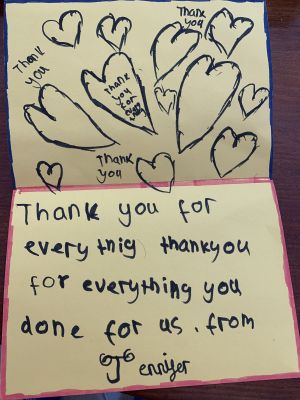 Thank
you
Thank
you
Thank
you
for
Thank
you
Thank you for
everything thankyou
for everything you
done for us. from
Jennifer